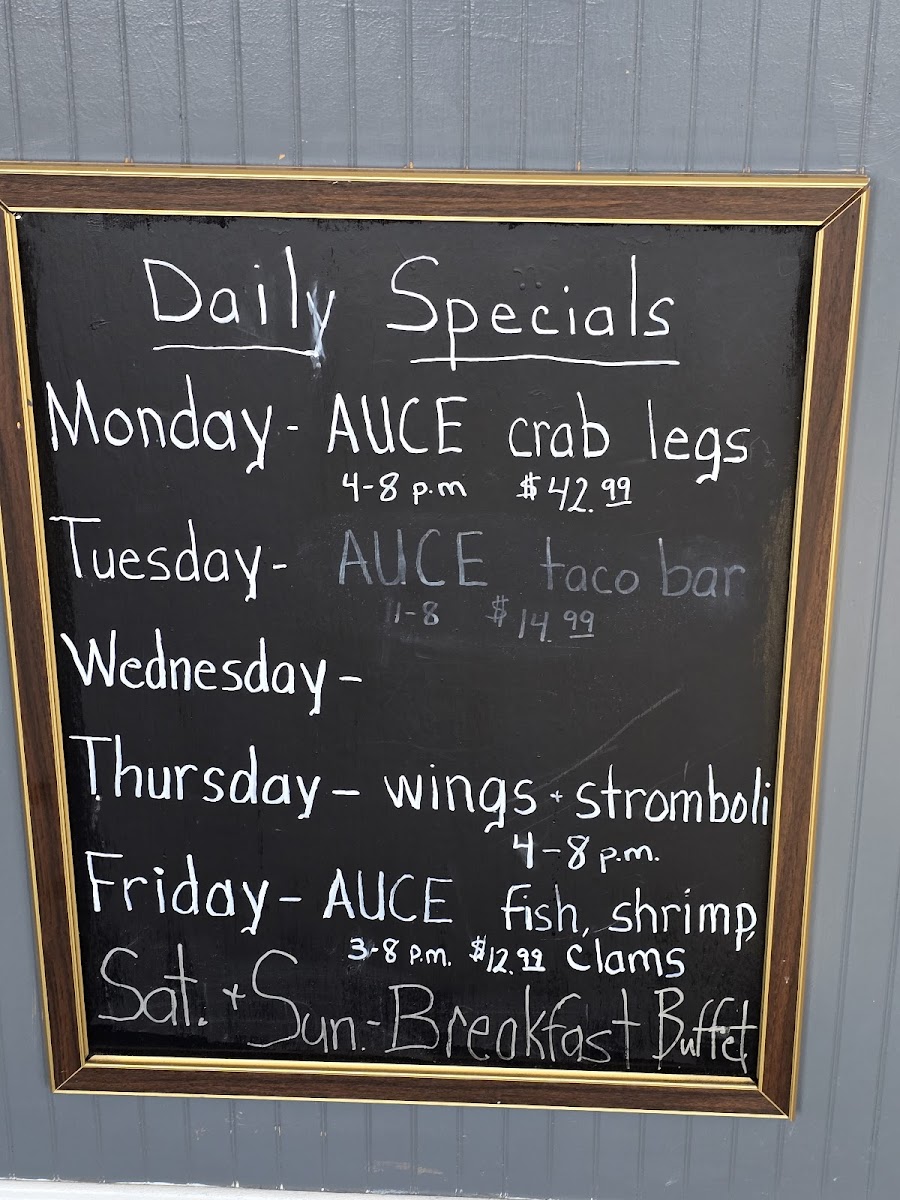 Daily Specials
Monday - AUCE crab legs
4-8 p.m $42.99
Tuesday - AUCE taco bar
11-8 $14.99
Wednesday -
Thursday - wings + stromboli
4-8 p.m.
Friday - AUCE fish, shrimp,
3-8 p.m. $12.99 clams
Sat. + Sun. - Breakfast Buffet